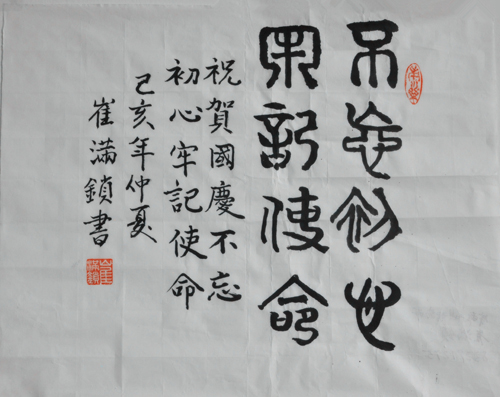 不忘初心
牢記使命
祝賀國慶不忘
初心牢記使命
己亥年仲夏
崔滿鎖書